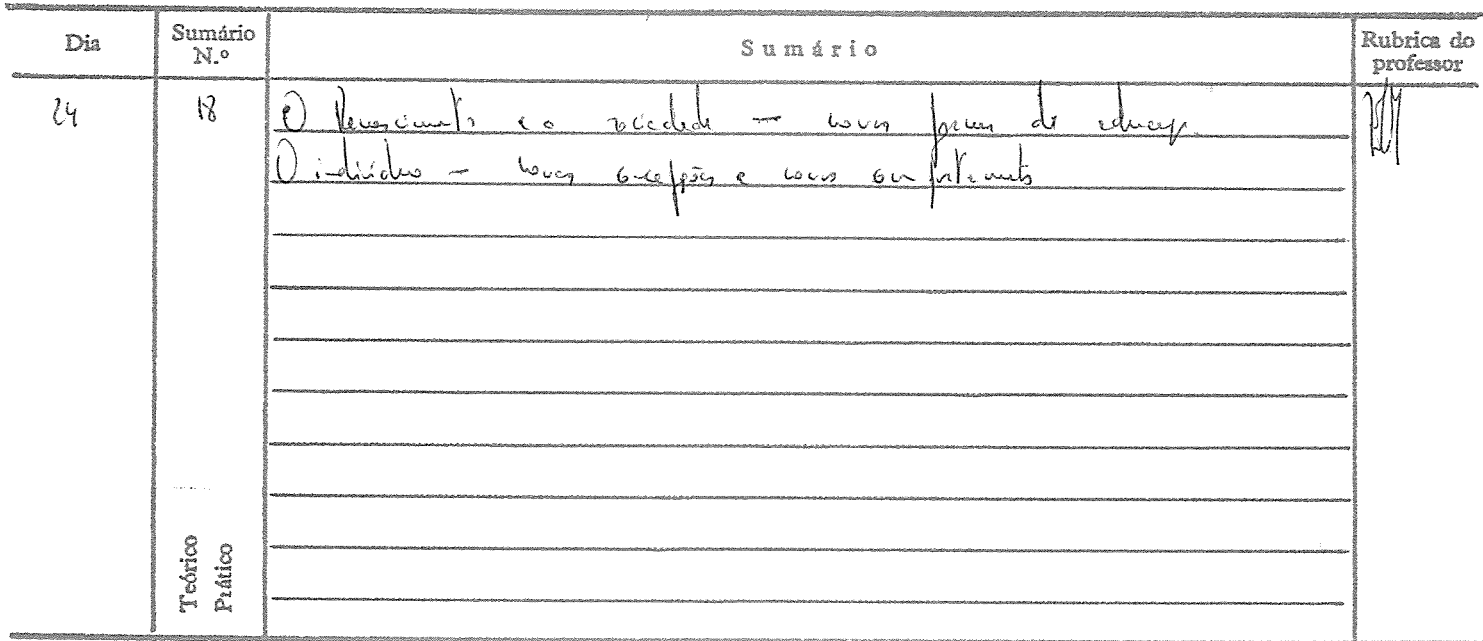 Dia Sumário N.º Sumário Rubrica do professor
24 18 O Renascimento e a sociedade — novas formas de educação.
O indivíduo — novas concepções e novos comportamentos
Teórico
Prático